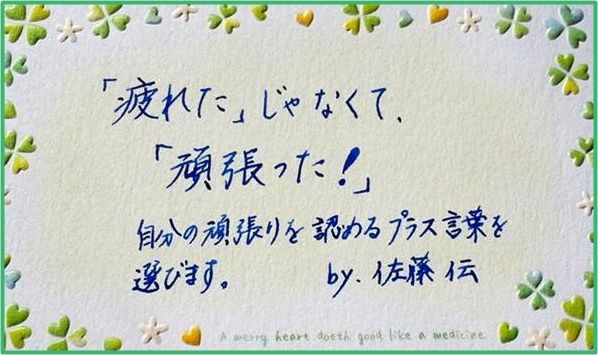 「疲れた」じゃなくて、
「頑張った!」
自分の頑張りを認めるプラス言葉を
選びます。 by. 佐藤 伝
A merry heart doeth good like a medicine